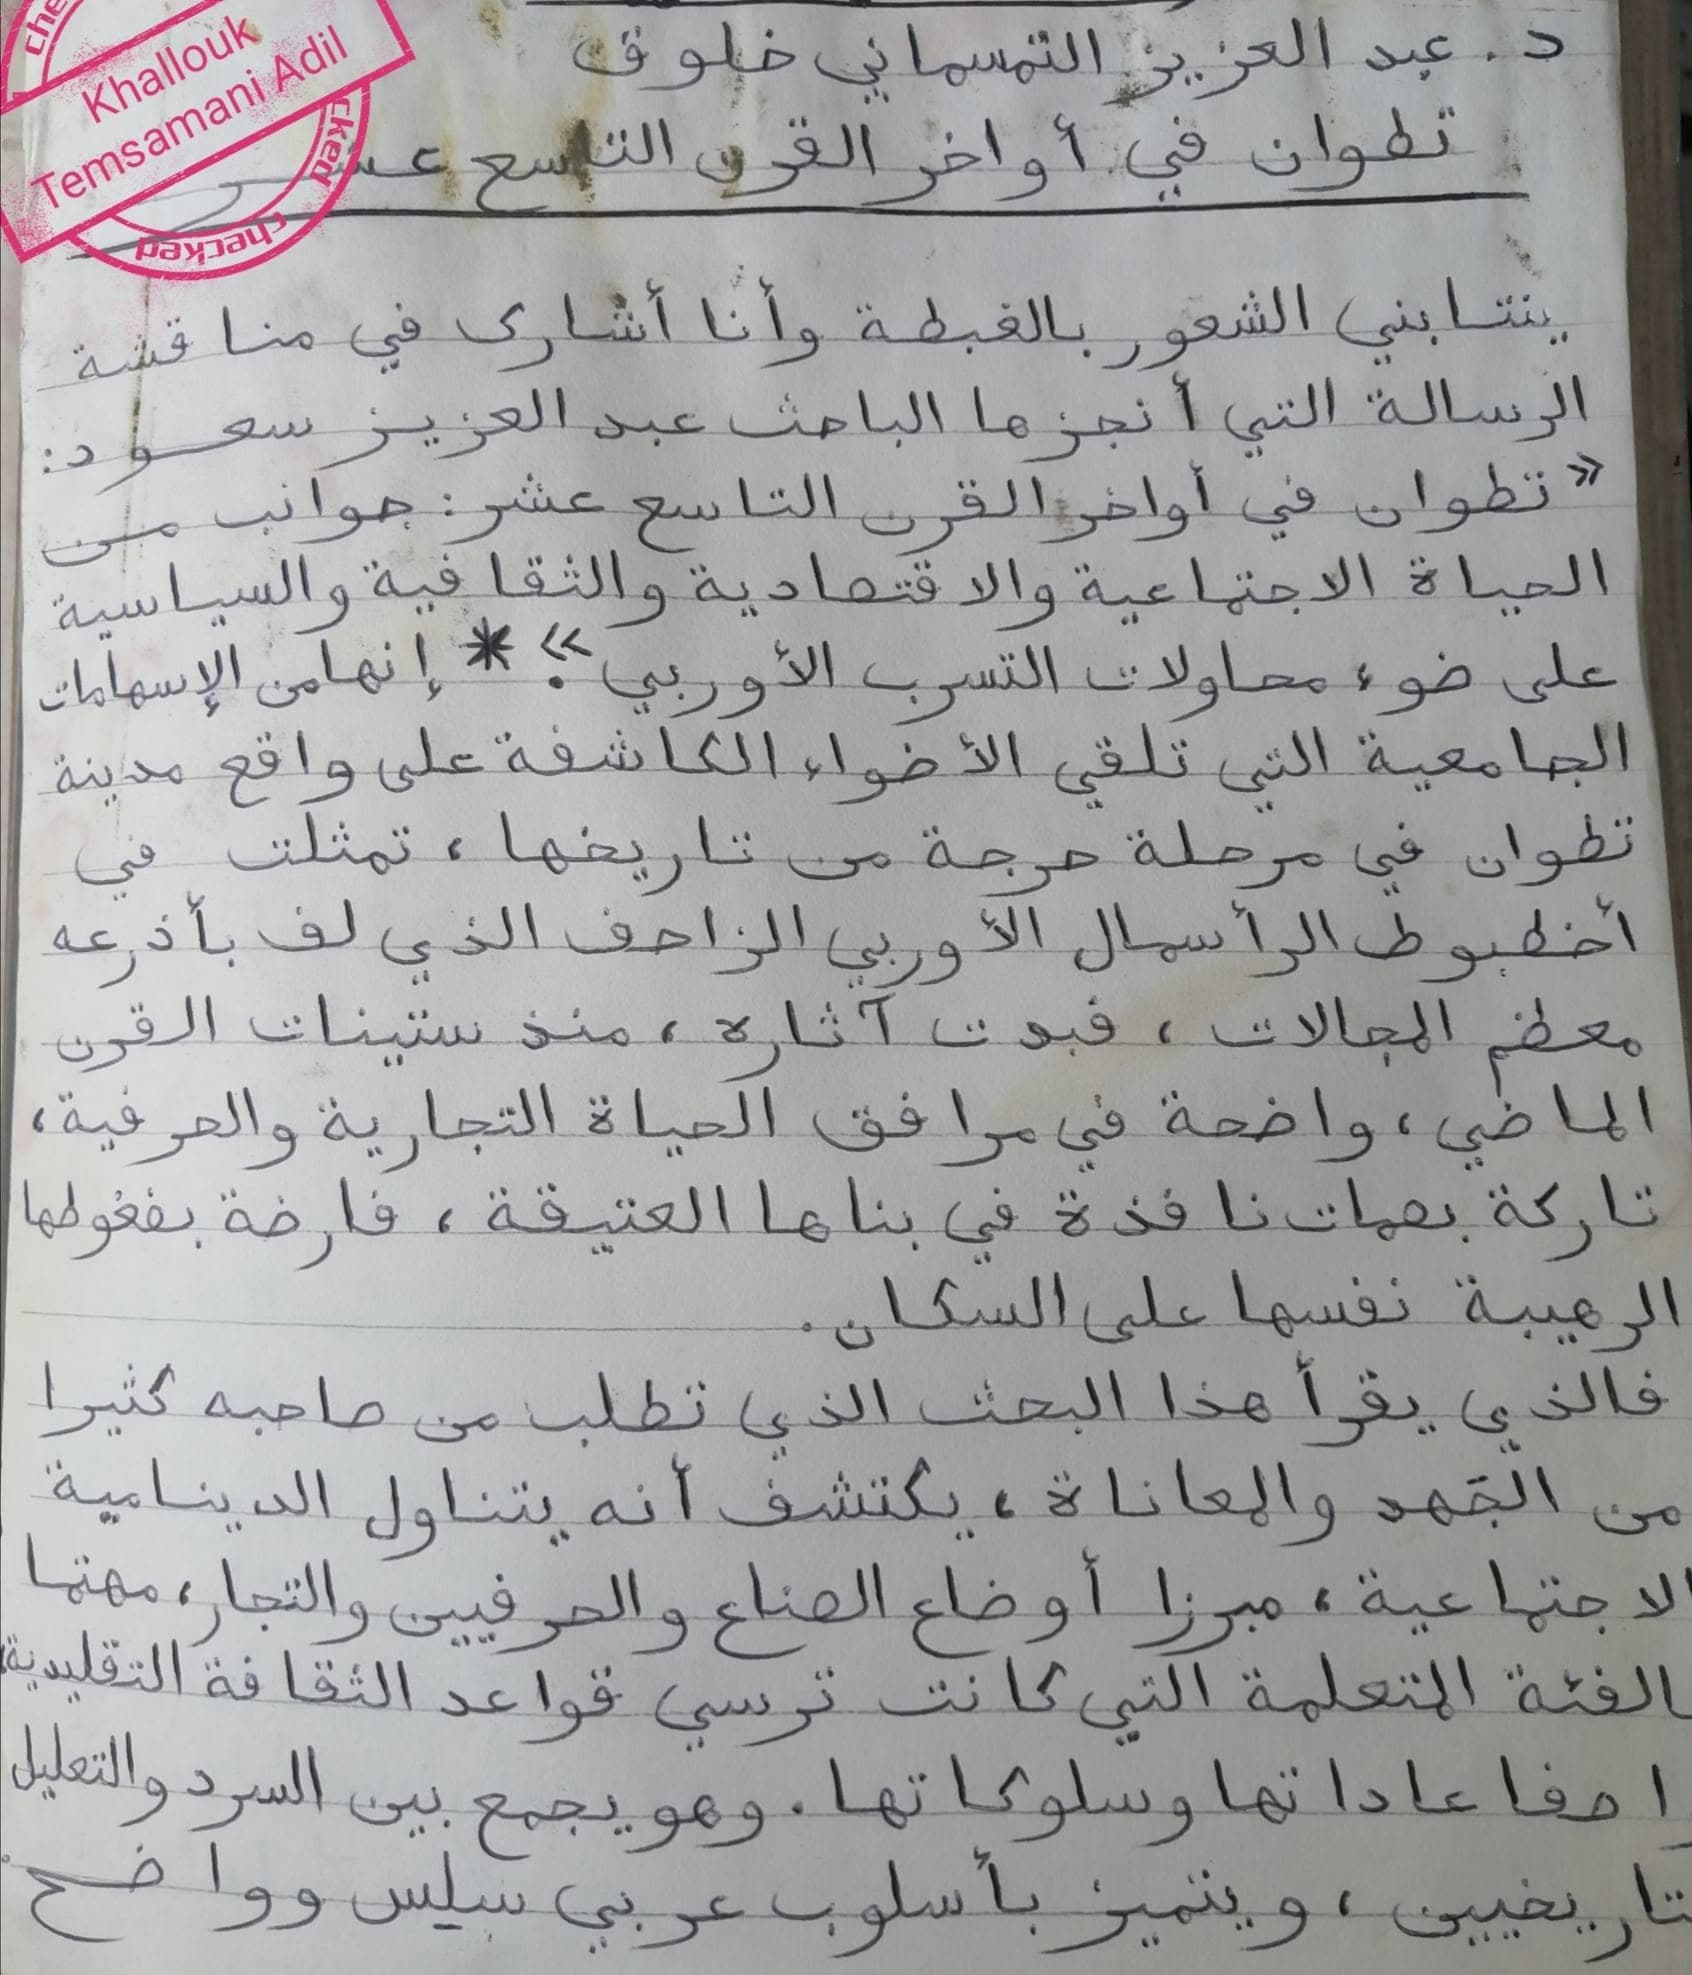 Khallouk
Temsamani Adil
checked
د. عبد العزيز التمسماني خلوق
تطوان في أواخر القرن التاسع عشر
ينتابني الشعور بالغبطة وأنا أشارك في مناقشة
الرسالة التي أنجزها الباحث عبد العزيز سعود:
«تطوان في أواخر القرن التاسع عشر: جوانب من
الحياة الاجتماعية والاقتصادية والثقافية والسياسية
على ضوء محاولات التسرب الأوربي».* إنها من الإسهامات
الجامعية التي تلقي الأضواء الكاشفة على واقع مدينة
تطوان في مرحلة حرجة من تاريخها، تمثلت في
أخطبوط الرأسمال الأوربي الزاحف الذي لف بأذرعه
معظم المجالات، فبدت آثاره، منذ ستينات القرن
الماضي، واضحة في مرافق الحياة التجارية والحرفية،
تاركة بصمات نافذة في بناها العتيقة، فارضة بضغوطها
الرهيبة نفسها على السكان.
فالذي يقرأ هذا البحث الذي تطلب من صاحبه كثيرا
من الجَهد والمعاناة، يكتشف أنه يتناول الدينامية
الاجتماعية، مبرزا أوضاع الصناع والحرفيين والتجار، مهتما
بالفئة المتعلمة التي كانت ترسي قواعد الثقافة التقليدية،
راصفا عاداتها وسلوكاتها. وهو يجمع بين السرد والتعليل
تاريخيين، ويتميز بأسلوب عربي سليس وواضح.